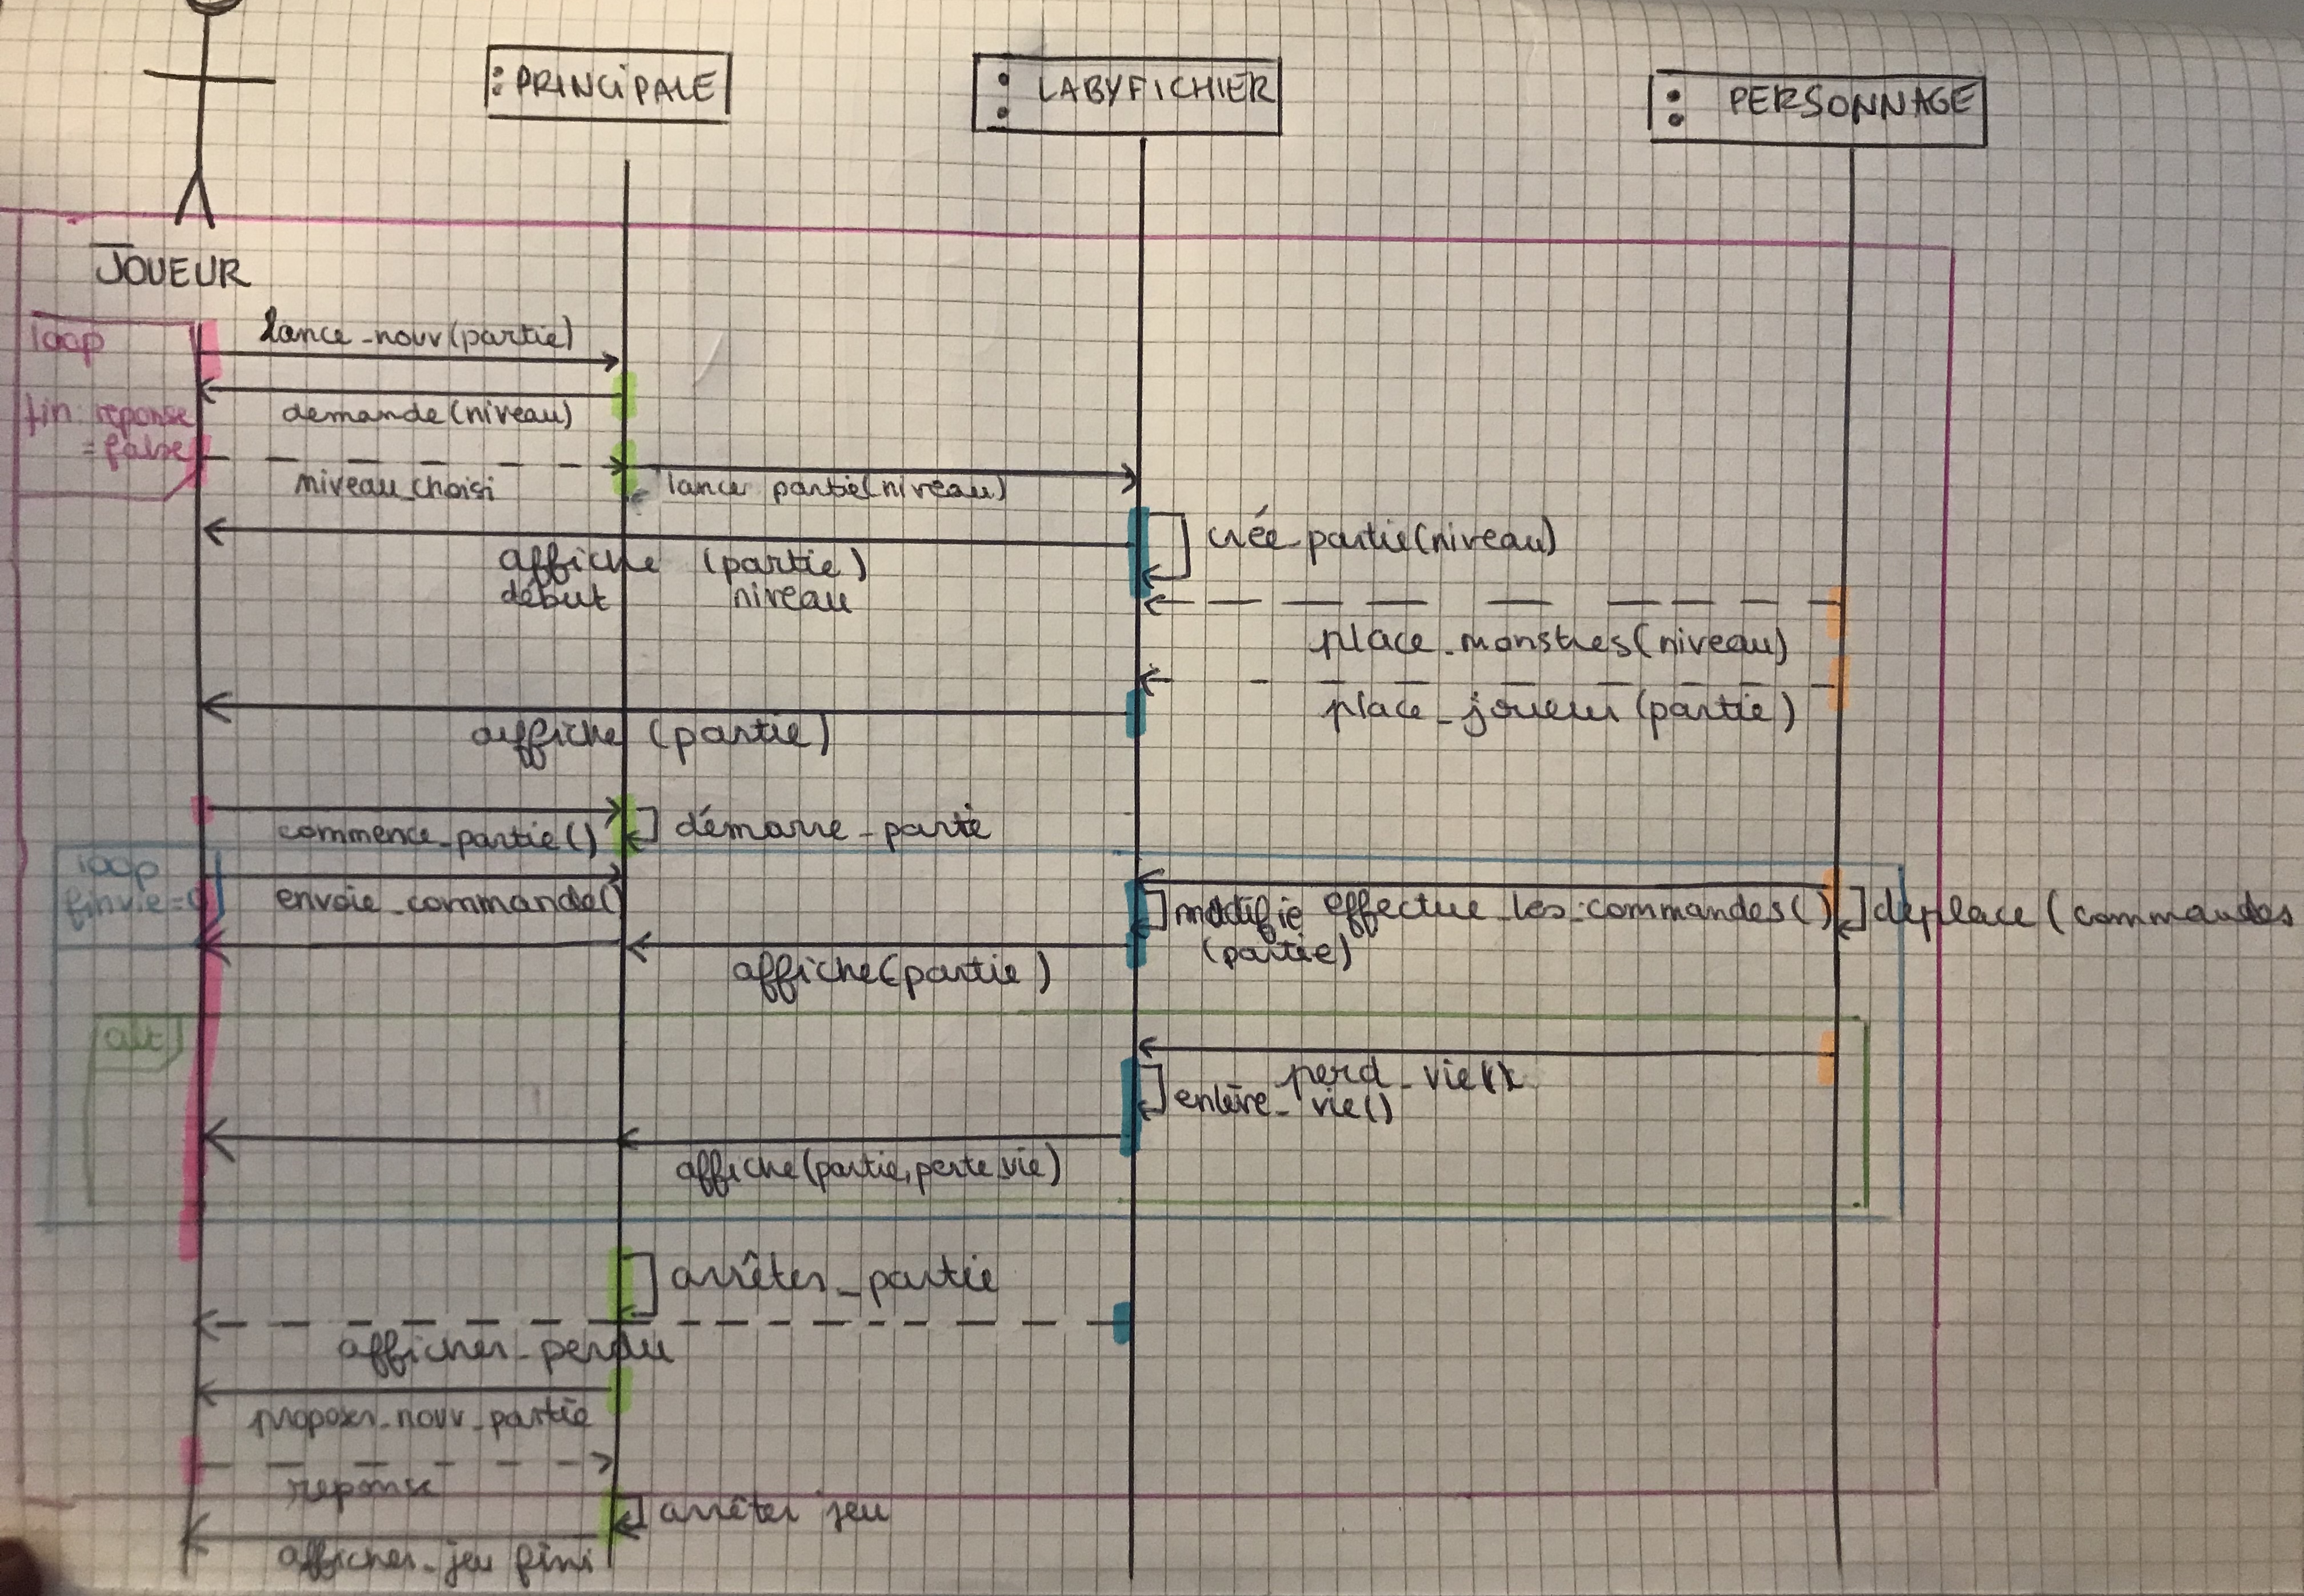 : PRINCIPALE
: LABYFICHIER
: PERSONNAGE
JOUEUR
loop
fin: reponse
= false
lance_nouv(partie)
demande(niveau)
niveau_choisi
lance partie(niveau)
crée_partie(niveau)
affiche (partie)
début niveau
place_monstres(niveau)
place_joueur(partie)
affiche (partie)
commence_partie()
démarre_partie
loop
fin vie=0
envoie_commande()
modifie
(partie)
effectue_les_commandes()
deplace(commandes
affiche(partie)
alt
perd_vie()
enlève_vie()
affiche(partie,perte_vie)
arrêter_partie
afficher_perdu
proposer_nouv_partie
reponse
arrêter jeu
afficher_jeu fini